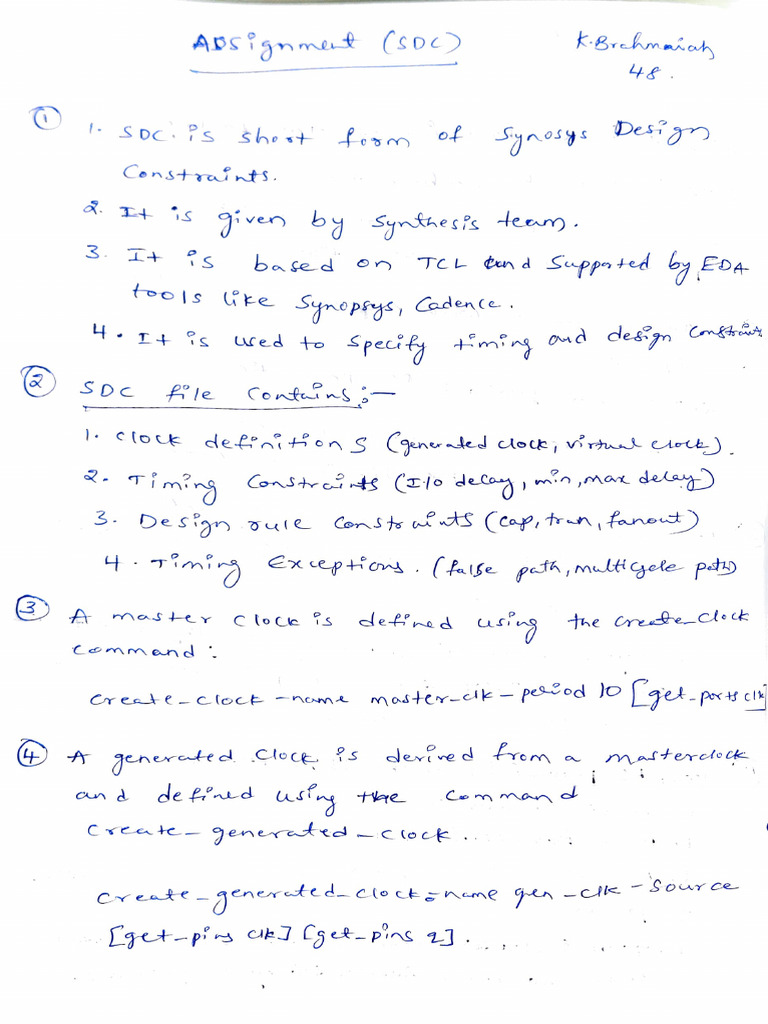 Assignment (SDC)
K.Brahmaiah
48.
1
1. SDC. is short form of Synosys Design
Constraints.
2. It is given by synthesis team.
3. It is based on TCL and Supported by EDA
tools like Synopsys, Cadence.
4. It is used to specify timing and design constraint
2 SDC file Contains:-
1. Clock definitions (generated clock, virtual clock).
2. Timing Constraints (I/o decay, min, max delay)
3. Design rule constraints (cap, tran, fanout)
4. Timing Exceptions. (false path, multicycle path)
3 A master clock is defined using the create_clock
command:
create_clock -name master_clk -period 10 [get_ports clk]
4 A generated clock is derived from a masterclock
and defined using the command
create_generated_clock.
create_generated_clock-name gen_clk -source
[get_pins clk] [get_pins q].